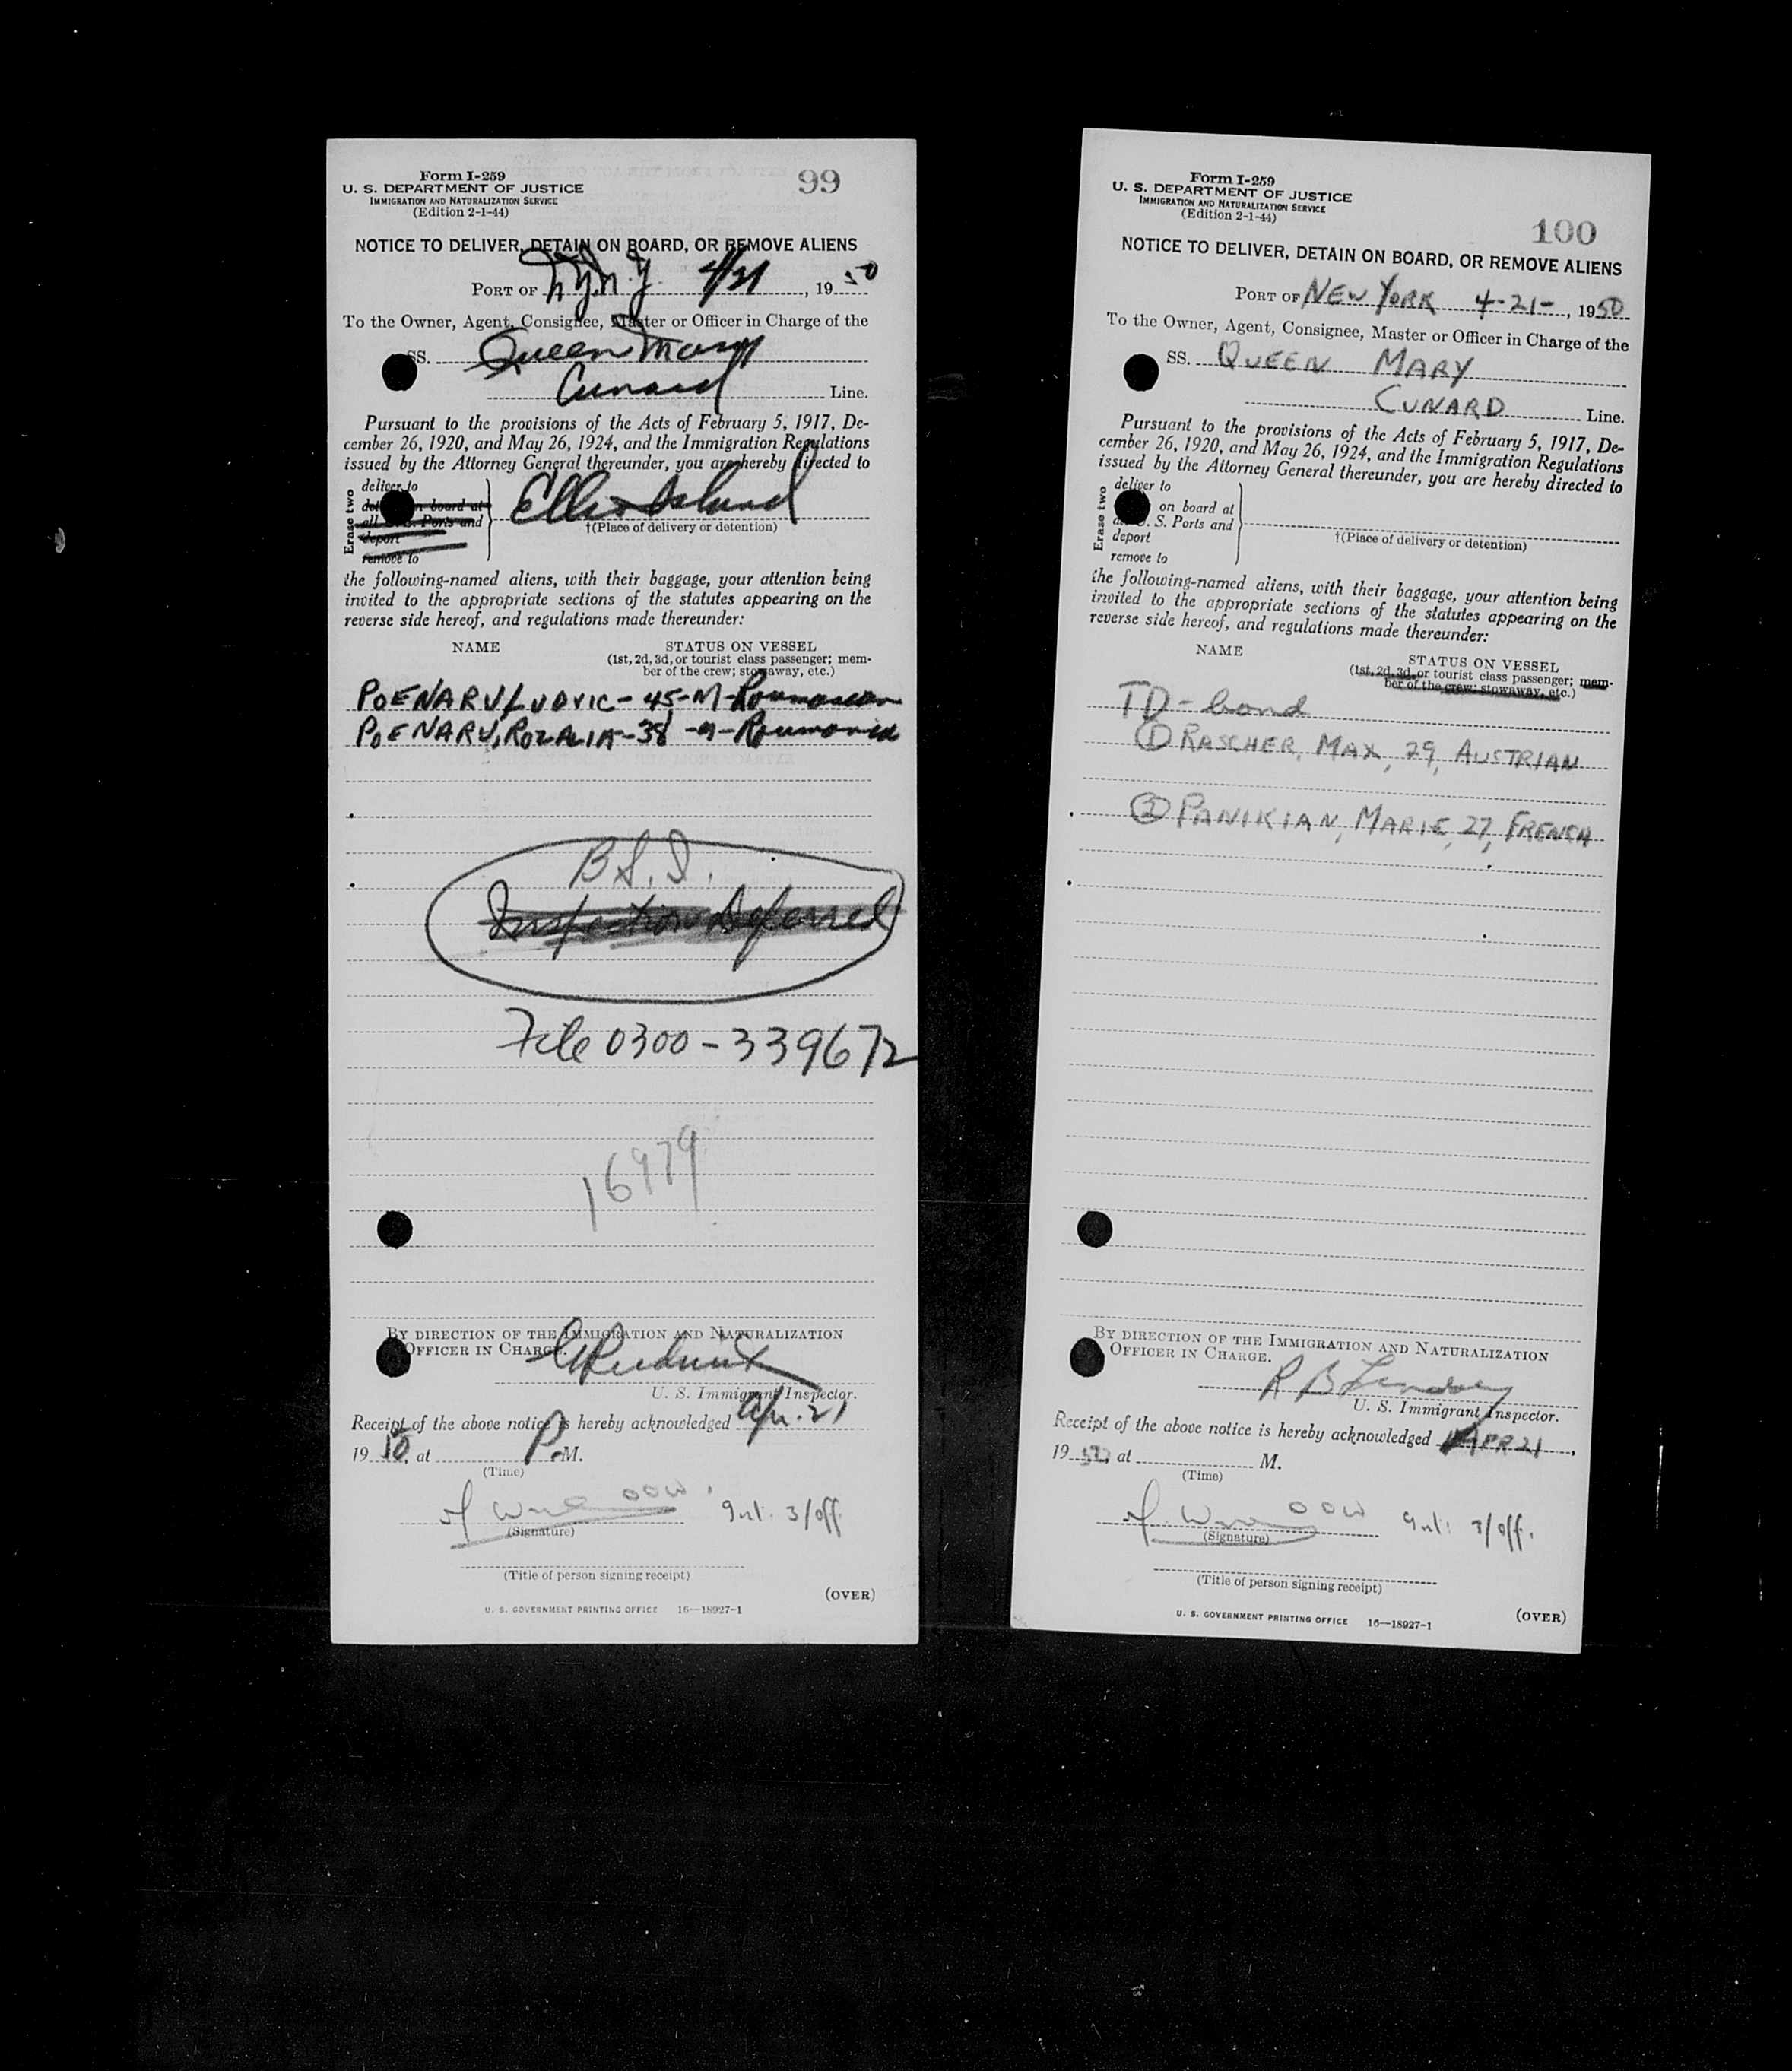 Form I-259
U. S. DEPARTMENT OF JUSTICE
IMMIGRATION AND NATURALIZATION SERVICE
(Edition 2-1-44)
99
NOTICE TO DELIVER, DETAIN ON BOARD, OR REMOVE ALIENS
PORT OF N.Y.N.Y. 4/21, 1950
To the Owner, Agent, Consignee, Master or Officer in Charge of the
SS. Queen Mary
Cunard Line.
Pursuant to the provisions of the Acts of February 5, 1917, De-
cember 26, 1920, and May 26, 1924, and the Immigration Regulations
issued by the Attorney General thereunder, you are hereby directed to
Erase two
deliver to
on board at
all Ports and
deport
remove to
Ellis Island
†(Place of delivery or detention)
the following-named aliens, with their baggage, your attention being
invited to the appropriate sections of the statutes appearing on the
reverse side hereof, and regulations made thereunder:
NAME STATUS ON VESSEL
(1st, 2d, 3d, or tourist class passenger; mem-
ber of the crew; stowaway, etc.)
POENARU, LUDVIC - 45 - M - Roumanian
POENARU, ROZALIA - 38 - M - Roumania
B.S.I.
Inspection Deferred
File 0300-339672
16979
BY DIRECTION OF THE IMMIGRATION AND NATURALIZATION
OFFICER IN CHARGE.
U. S. Immigrant Inspector.
Receipt of the above notice is hereby acknowledged Apr. 21
1950, at P. M.
(Time)
OOW
3/off.
(Signature)
(Title of person signing receipt)
(OVER)
U. S. GOVERNMENT PRINTING OFFICE 16—18927-1
Form I-259
U. S. DEPARTMENT OF JUSTICE
IMMIGRATION AND NATURALIZATION SERVICE
(Edition 2-1-44)
100
NOTICE TO DELIVER, DETAIN ON BOARD, OR REMOVE ALIENS
PORT OF NEW YORK 4-21-, 1950
To the Owner, Agent, Consignee, Master or Officer in Charge of the
SS. QUEEN MARY
CUNARD Line.
Pursuant to the provisions of the Acts of February 5, 1917, De-
cember 26, 1920, and May 26, 1924, and the Immigration Regulations
issued by the Attorney General thereunder, you are hereby directed to
Erase two
deliver to
on board at
S. Ports and
deport
remove to
†(Place of delivery or detention)
the following-named aliens, with their baggage, your attention being
invited to the appropriate sections of the statutes appearing on the
reverse side hereof, and regulations made thereunder:
NAME STATUS ON VESSEL
(1st, 2d, 3d, or tourist class passenger; mem-
ber of the crew; stowaway, etc.)
TD - bond
① RASCHER, MAX, 29, AUSTRIAN
② PANIKIAN, MARIE, 27, FRENCH
BY DIRECTION OF THE IMMIGRATION AND NATURALIZATION
OFFICER IN CHARGE.
R B Lindsey
U. S. Immigrant Inspector.
Receipt of the above notice is hereby acknowledged APR 21,
1950, at M.
(Time)
OOW
3/off.
(Signature)
(Title of person signing receipt)
(OVER)
U. S. GOVERNMENT PRINTING OFFICE 16—18927-1